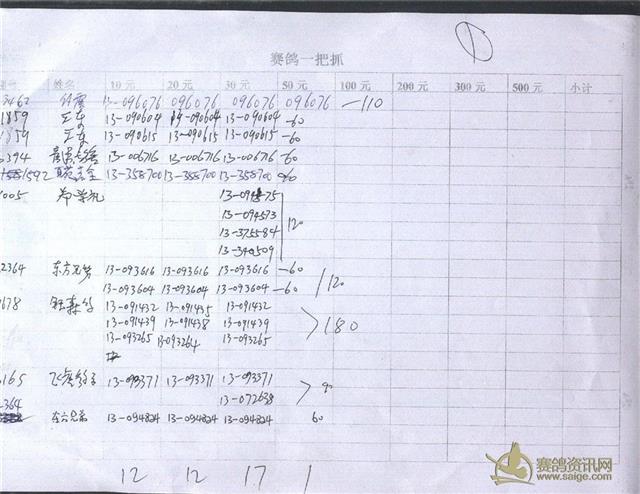 ①
赛鸽一把抓
姓名 10 元 20 元 30 元 50 元 100 元 200 元 300 元 500 元 小计
3462 13-096076 096076 096076 096076 —110
1859 王东 13-090604 13-090604 13-090604 —60
1859 王东 13-090615 13-090615 13-090615 —60
394 13-006716 13-006716 13-006716 —60
1592 13-358700 13-358700 13-358700
005 13-094575
13-094573
13-375584 120
13-340509
2364 东方兄弟 13-093616 13-093616 13-093616 —60
13-093604 13-093604 13-093604 —60 120
1678 13-091432 13-091435 13-091432
13-091439 13-091438 13-091439 180
13-093265 13-093264 13-093265
165 13-093371 13-093371 13-093371
13-072638
364 东方兄弟 13-094824 13-094824 13-094824 60
12 12 17 1
赛鸽资讯网
www.saige.com